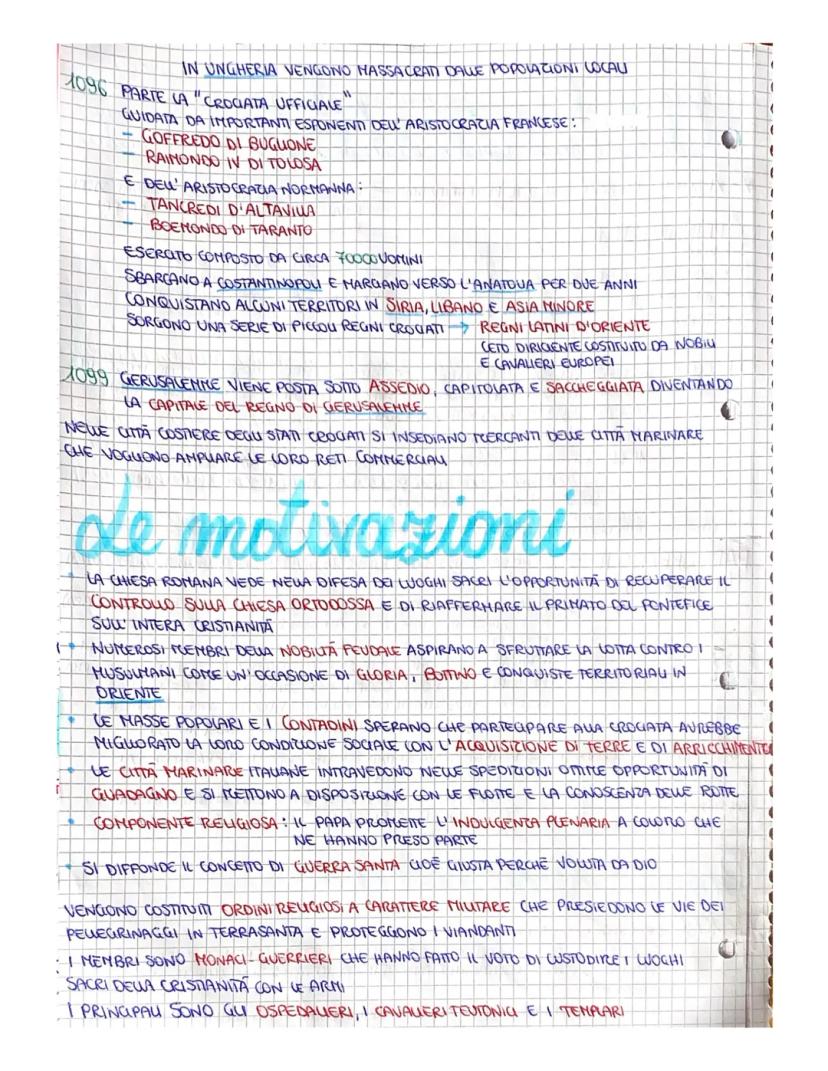 IN UNGHERIA VENGONO MASSACRATI DALLE POPOLAZIONI LOCALI
1096 PARTE LA "CROCIATA UFFICIALE"
GUIDATA DA IMPORTANTI ESPONENTI DELL'ARISTOCRAZIA FRANCESE:
- GOFFREDO DI BUGLIONE
- RAIMONDO IV DI TOLOSA
E DELL'ARISTOCRAZIA NORMANNA:
- TANCREDI D'ALTAVILLA
- BOEMONDO DI TARANTO
ESERCITO COMPOSTO DA CIRCA 70000 UOMINI
SBARCANO A COSTANTINOPOLI E MARCIANO VERSO L'ANATOLIA PER DUE ANNI
CONQUISTANO ALCUNI TERRITORI IN SIRIA, LIBANO E ASIA MINORE
SORGONO UNA SERIE DI PICCOLI REGNI CROCIATI → REGNI LATINI D'ORIENTE
CETO DIRIGENTE COSTITUITO DA NOBILI
E CAVALIERI EUROPEI
1099 GERUSALEMME VIENE POSTA SOTTO ASSEDIO, CAPITOLATA E SACCHEGGIATA DIVENTANDO
LA CAPITALE DEL REGNO DI GERUSALEMME
NELLE CITTÀ COSTIERE DEGLI STATI CROCIATI SI INSEDIANO MERCANTI DELLE CITTÀ MARINARE
CHE VOGLIONO AMPLIARE LE LORO RETI COMMERCIALI
Le motivazioni
• LA CHIESA ROMANA VEDE NELLA DIFESA DEI LUOGHI SACRI L'OPPORTUNITÀ DI RECUPERARE IL
CONTROLLO SULLA CHIESA ORTODOSSA E DI RIAFFERMARE IL PRIMATO DEL PONTEFICE
SULL'INTERA CRISTIANITÀ
• NUMEROSI MEMBRI DELLA NOBILTÀ FEUDALE ASPIRANO A SFRUTTARE LA LOTTA CONTRO I
MUSULMANI COME UN'OCCASIONE DI GLORIA, BOTTINO E CONQUISTE TERRITORIALI IN
ORIENTE
• LE MASSE POPOLARI E I CONTADINI SPERANO CHE PARTECIPARE ALLA CROCIATA AVREBBE
MIGLIORATO LA LORO CONDIZIONE SOCIALE CON L'ACQUISIZIONE DI TERRE E DI ARRICCHIMENTO
• LE CITTÀ MARINARE ITALIANE INTRAVEDONO NELLE SPEDIZIONI OTTIME OPPORTUNITÀ DI
GUADAGNO E SI METTONO A DISPOSIZIONE CON LE FLOTTE E LA CONOSCENZA DELLE ROTTE
• COMPONENTE RELIGIOSA: IL PAPA PROMETTE L'INDULGENZA PLENARIA A COLORO CHE
NE HANNO PRESO PARTE
• SI DIFFONDE IL CONCETTO DI GUERRA SANTA CIOÈ GIUSTA PERCHÈ VOLUTA DA DIO
VENGONO COSTITUITI ORDINI RELIGIOSI A CARATTERE MILITARE CHE PRESIEDONO LE VIE DEI
PELLEGRINAGGI IN TERRASANTA E PROTEGGONO I VIANDANTI
I MEMBRI SONO MONACI-GUERRIERI CHE HANNO FATTO IL VOTO DI CUSTODIRE I LUOGHI
SACRI DELLA CRISTIANITÀ CON LE ARMI
I PRINCIPALI SONO GLI OSPEDALIERI, I CAVALIERI TEUTONICI E I TEMPLARI